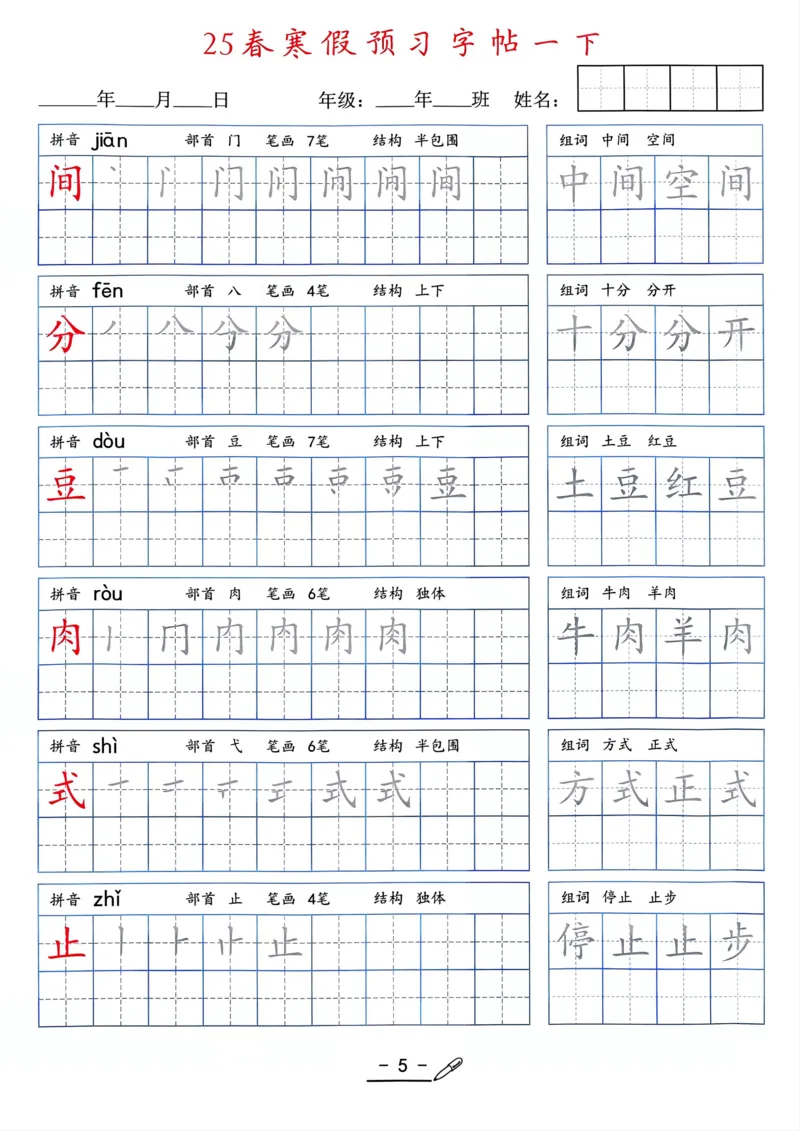 25春寒假预习字帖一下
______年____月____日 年级：____年____班 姓名：
拼音 jiān 部首 门 笔画 7笔 结构 半包围 组词 中间 空间
间 中间空间
拼音 fēn 部首 八 笔画 4笔 结构 上下 组词 十分 分开
分 十分分开
拼音 dòu 部首 豆 笔画 7笔 结构 上下 组词 土豆 红豆
豆 土豆红豆
拼音 ròu 部首 肉 笔画 6笔 结构 独体 组词 牛肉 羊肉
肉 牛肉羊肉
拼音 shì 部首 弋 笔画 6笔 结构 半包围 组词 方式 正式
式 方式正式
拼音 zhǐ 部首 止 笔画 4笔 结构 独体 组词 停止 止步
止 停止止步
- 5 -